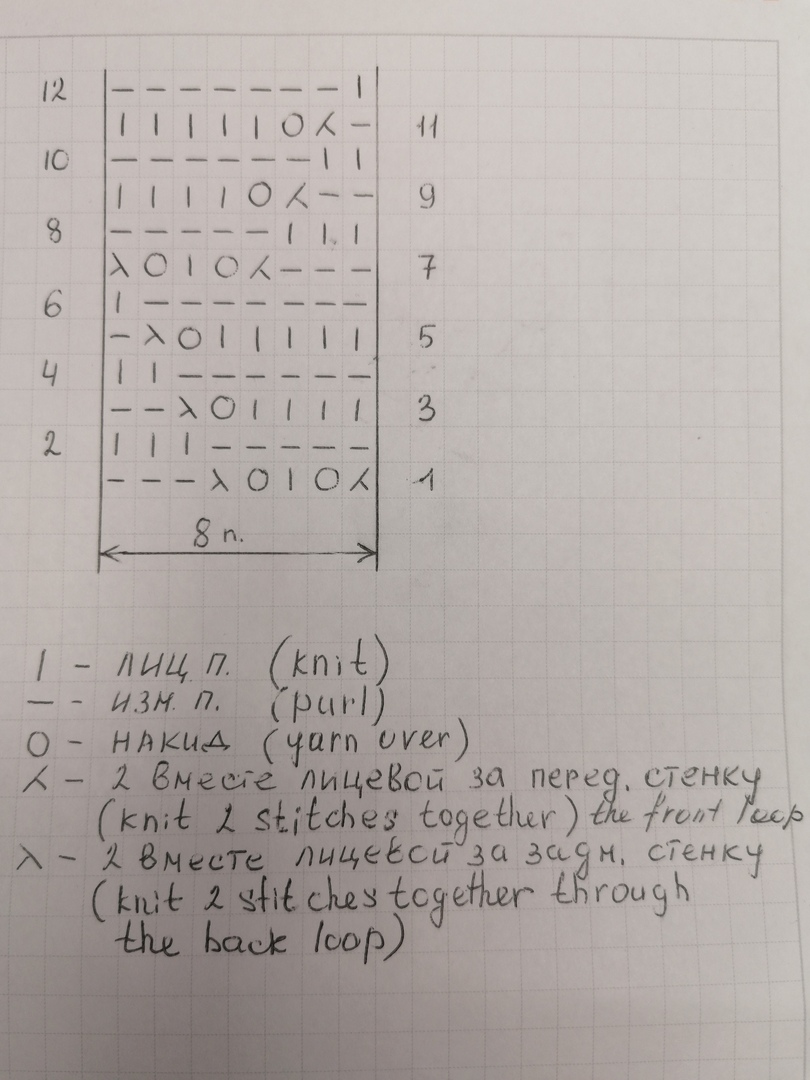 12 — — — — — — — |
| | | | | O ⅄ — 11
10 — — — — — — | |
| | | | O ⅄ — — 9
8 — — — — — | | |
λ O | O ⅄ — — — 7
6 | — — — — — — —
— λ O | | | | | 5
4 | | — — — — — —
— — λ O | | | | 3
2 | | | — — — — —
— — — λ O | O ⅄ 1
8 п.
| - лиц п. (knit)
— - изн. п. (purl)
O - накид (yarn over)
⅄ - 2 вместе лицевой за перед. стенку
(knit 2 stitches together) the front loop
λ - 2 вместе лицевой за задн. стенку
(knit 2 stitches together through
the back loop)